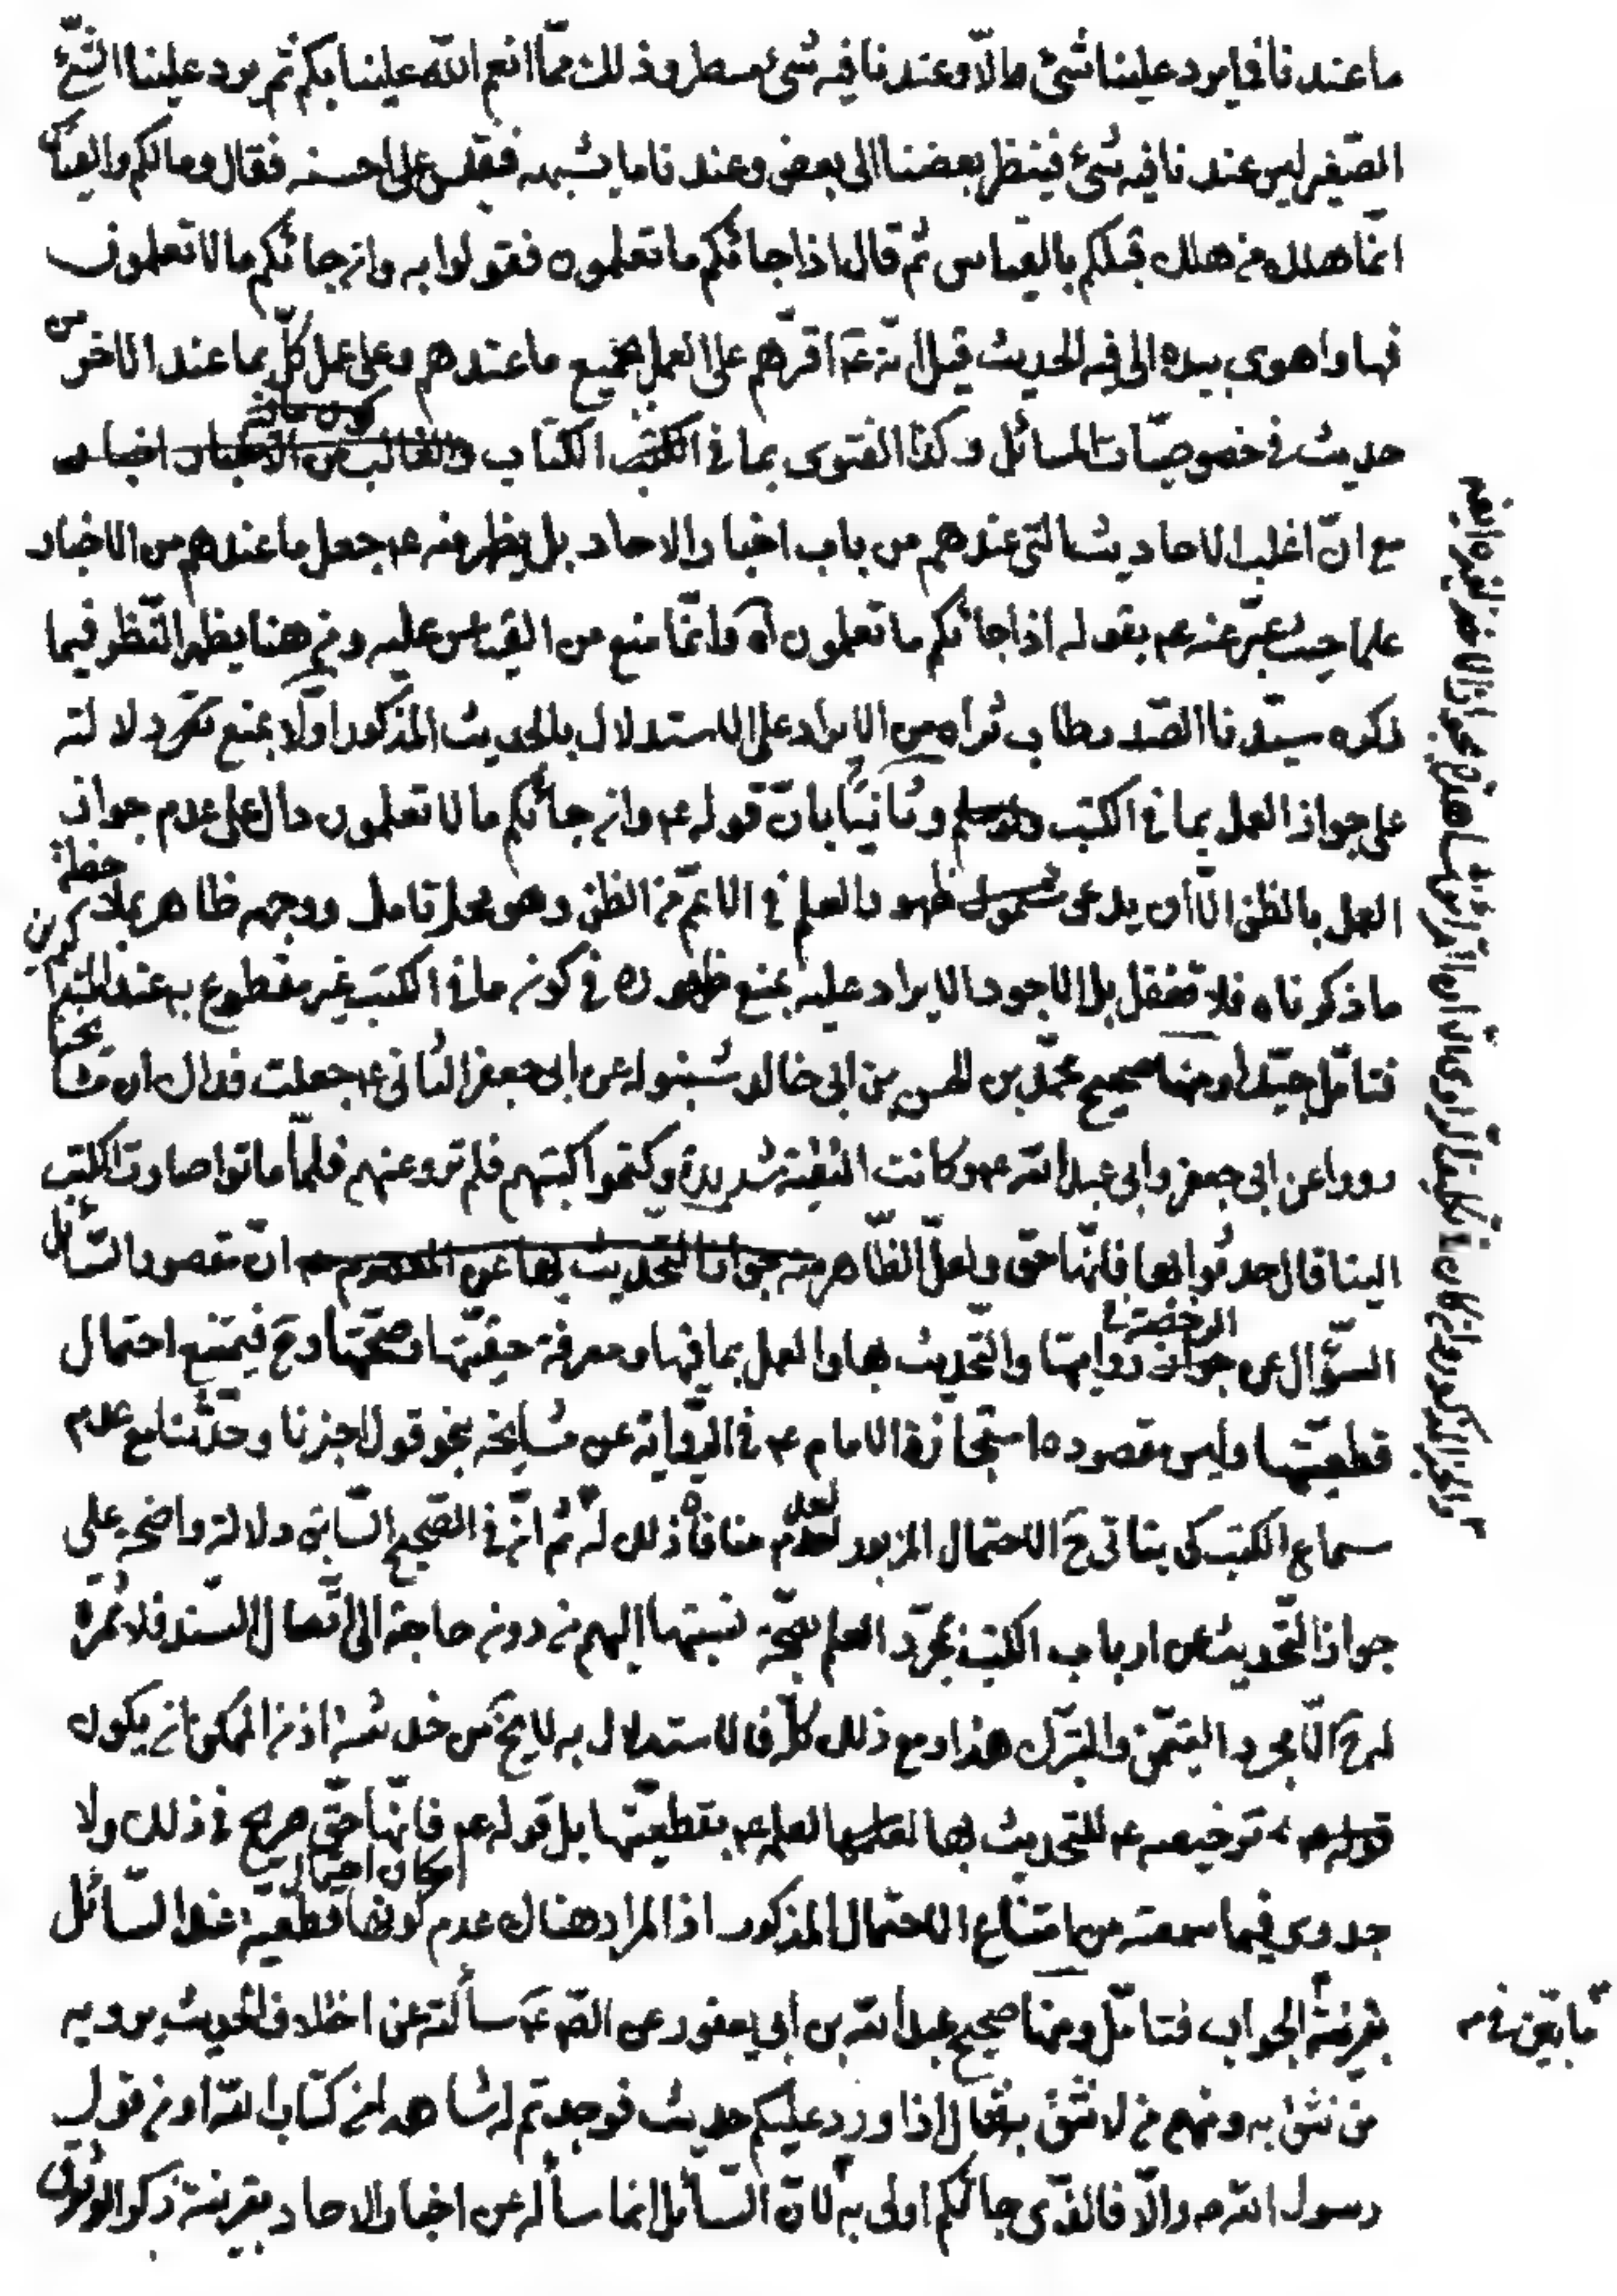 ما عندنا فما يرد علينا شئ الّا وعندنا فيه شئ مسطر وذلك ممّا انعم الله علينا بكم ثم يرد علينا الشئ
الصّغير ليس عندنا فيه شئ فينظر بعضنا الى بعض وعندنا ما يشبهه فنقيس على احسنه فقال ومالكم والقياس
انّما هلك من هلك قبلكم بالقياس ثم قال اذا جائكم ما تعلمون فقولوا به وان جائكم ما لا تعلمون
فها واهوى بيده الى فيه الحديث قيل انّه ع اقرّهم على العمل بجميع ما عندهم وعلى عمل كلّ بما عند الاخر من
حديث في خصوصيّات المسائل وكذا الفتوى بما في الكتب الكتاب والغالب من الاخبار اخبار
مع انّ اغلب الاحاديث التى عندهم من باب اخبار الاحاد بل يظهر منه ع جعل ما عندهم من الاخبار
علما حيث عبّر عنه ع بقوله اذا جائكم ما تعلمون آه وانّما منع من القياس عليه ومن هنا يظهر النّظر فيما
ذكره سيّدنا الصّدر طاب ثراه من الايراد على الاستدلال بالحديث المذكور اولا بمنع دلالته
على جواز العمل بما في الكتب وثانيا بانّ قوله ع وان جائكم ما لا تعلمون دال على عدم جواز
العمل بالظن الّا ان يدعى ظهور العلم في الاعمّ من الظن وهو محل تامل ووجهه ظاهر بملاحظة
ما ذكرناه فلا تغفل بل الاجود الايراد عليه بمنع ظهوره في كون ما في الكتب غير مقطوع به عند
فتامّل جيّدا ومنها صحيح محمّد بن الحسن بن ابى خالد شينوله عن ابى جعفر الثانى ع جعلت فداك ان مشايخنا
رووا عن ابى جعفر وابى عبد الله ع وكانت التقيّة شديدة وكتموا كتبهم فلم ترو عنهم فلمّا ماتوا صارت الكتب
الينا قال حدثوا بها فانّها حق ولعلّ الظّاهر منه جواز التحديث بها عن انّ مقصود السّائل
السّؤال عن جواز الرخصة في روايتها والتّحديث بها والعمل بما فيها ومعرفة حقيّتها وصحّتها وح فيمتنع احتمال
قطعيّتها وليس مقصوده استجازة الامام ع في الرّواية عن مشايخه بنحو قول اخبرنا وحدّثنا مع عدم
سماع الكتب كى يتاتى ح الاحتمال المزبور لعدم منافاة ذلك له ثم انّ في الصّحيح السّابق دلالة واضحة على
جواز التّحديث عن ارباب الكتب بمجرّد العلم بصحّة نسبتها اليهم من دون حاجة الى اتّصال السّند فلا ثمرة
له ح الّا مجرد التيمّن والتبرّك هذا ومع ذلك كلّه فالاستدلال به لا يخ من خدشة اذ من الممكن ان يكون
ترخيصه ع للتحديث بها لعلمه ع بقطعيّتها بل قوله ع فانّها حقّ صريح في ذلك ولا
امكان احتمال
جدوى فيما سمعته من امتناع الاحتمال المذكور اذ المراد هناك عدم كونها قطعيّة عند السّائل
بقرينة الجواب فتامّل ومنها صحيح عبد الله بن ابى يعفور عن الصّ ع سألته عن اختلاف الحديث يرويه
من نثق به ومنهم من لا نثق به قال اذا ورد عليكم حديث فوجدتم له شاهد من كتاب الله او من قول
رسول الله ص والّا فالذّى جائكم اولى به لانّ السّائل انما سأله عن اخبار الاحاد بقرينة ذكر الوثوق